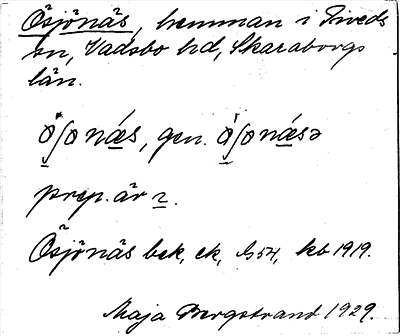 Ösjönäs, hemman i Tiveds
sn, Vadsbo hd, Skaraborgs
län.
prep. är ɩ.
Ösjönäs bek, ek, G54, kb 1919.
Maja Bergstrand 1929.